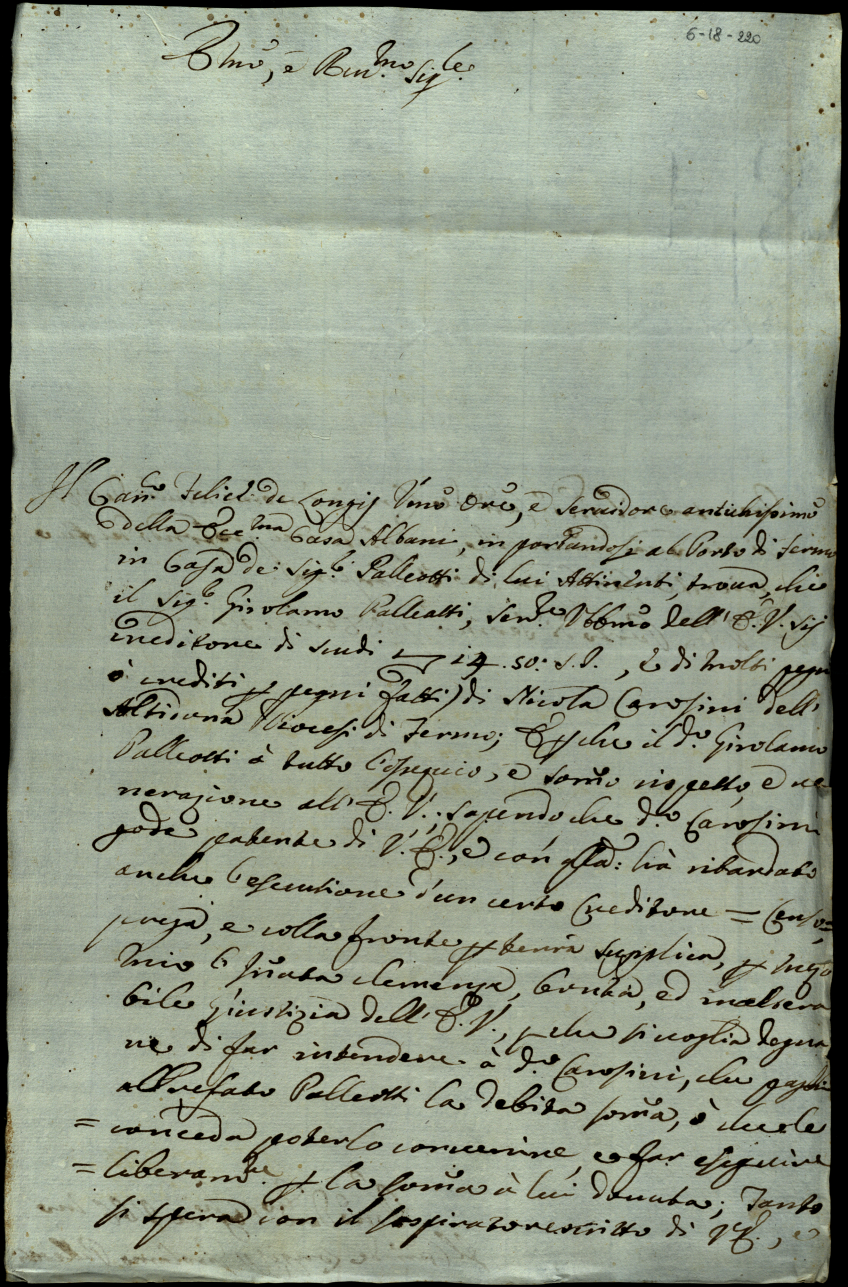 6-18-220
Illmo, e Rev.mo Sig.re
Il Can.co Felice de Longis Umo Ore, e Servidore antichissimo
della Ecc.ma Casa Albani, in portandosi al Porto di Fermo
in Casa de Sig.ri Palleotti di lui Attinenti, trova, che
il Sig.r Girolamo Palleotti, Serv.re Obbmo dell' E. V. sij
creditore di scudi 14.50:, e di molti pegni
ò crediti p pegni fatti) di Nicola Carosini dell'
Altidona Diocesi di Fermo; E p che il d.o Girolamo
Palleotti à tutto l'ossequio, e somo rispetto e ve
nerazione all' E. V., sapendo che d.o Carosini
gode patente di V. E., e con qsta: hà ritardato
anche l'esecutione d'un certo Creditore =
, e colla fronte p terra supplica, p
l' innata clemenza, bontà, ed inaltera
bile Giustizia dell' E. V., p che si voglia degna
re di far intendere à d.o Carosini, che paghi
al Palleotti la debita soma, ò che le
= conceda poterlo convenire, e far eseguire
= liberam.te p la soma à lui dovuta; Tanto
si spera con il sospirato rescritto di V. E., e